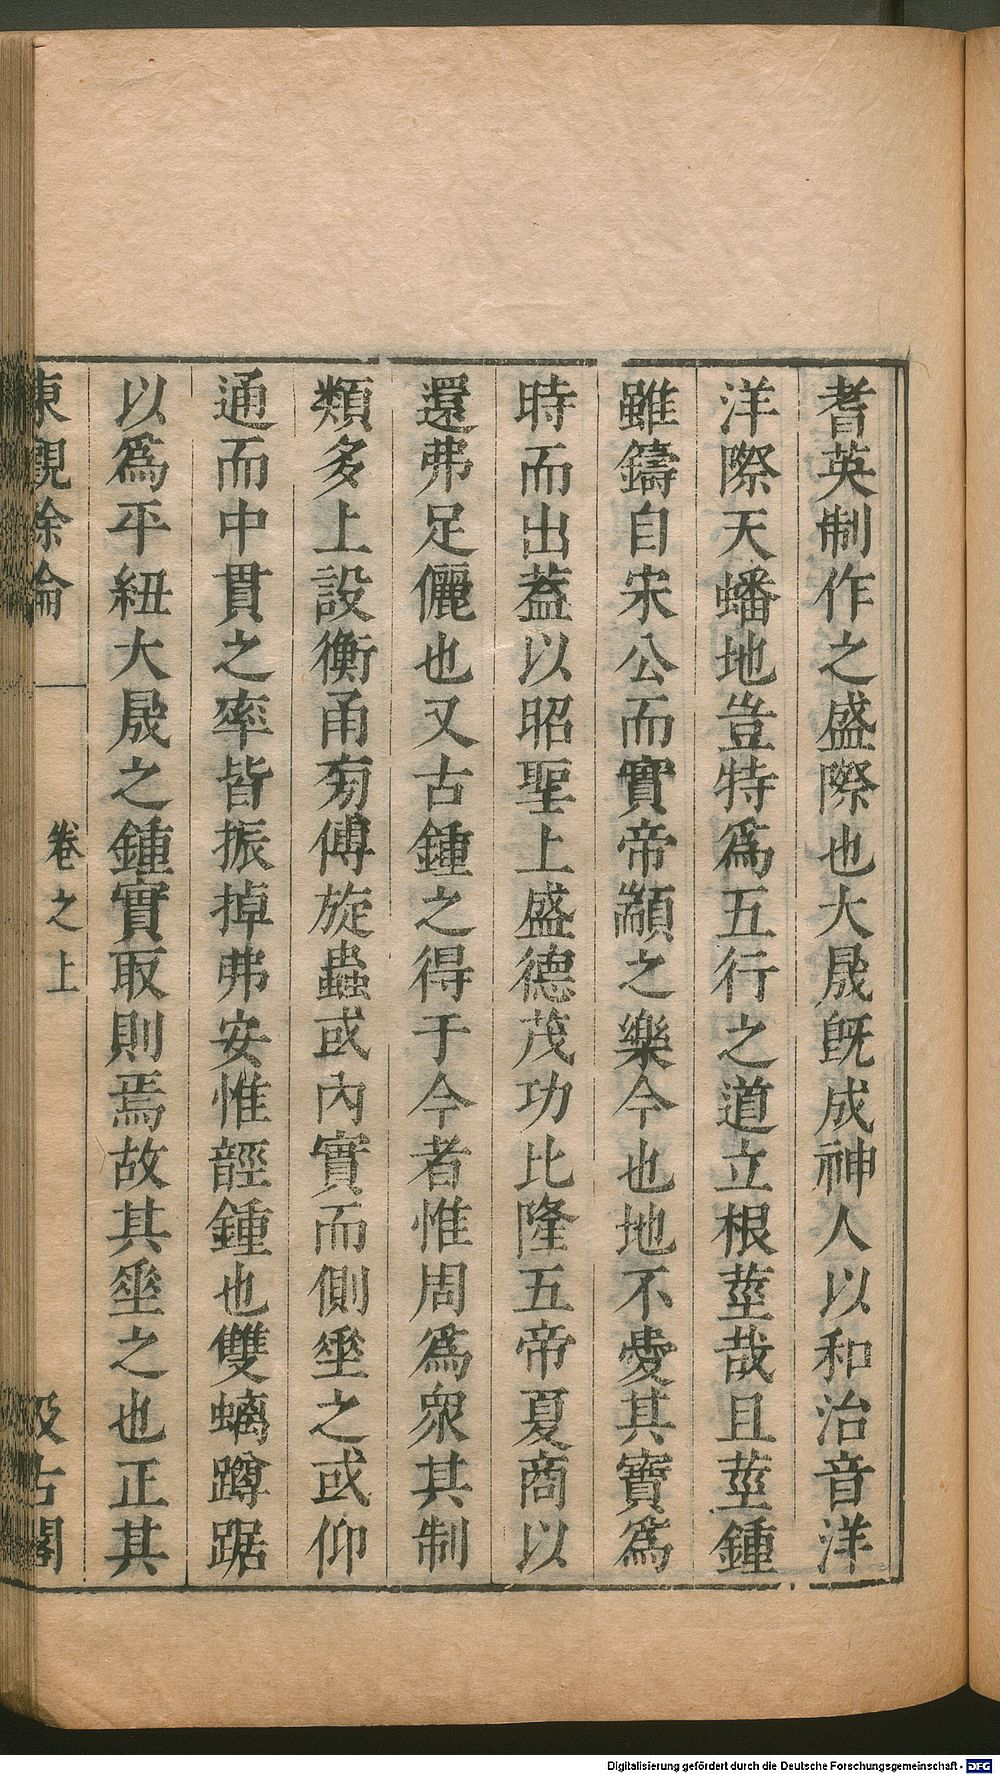 耆英制作之盛際也大晟旣成神人以和治音洋
洋際天蟠地豈特爲五行之道立根莖哉且莖鍾
雖鑄自宋公而實帝顓之樂今也地不愛其寶爲
時而出葢以昭聖上盛德茂功比隆五帝夏商以
還弗足儷也又古鍾之得于今者惟周爲衆其制
類多上設衡甬旁傅旋蟲或內實而側垂之或仰
通而中貫之率皆振掉弗安惟䪫鍾也雙螭蹲踞
以爲平紐大晟之鍾實取則焉故其垂之也正其
東觀餘論
卷之上
汲古閣
Digitalisierung gefördert durch die Deutsche Forschungsgemeinschaft - DFG